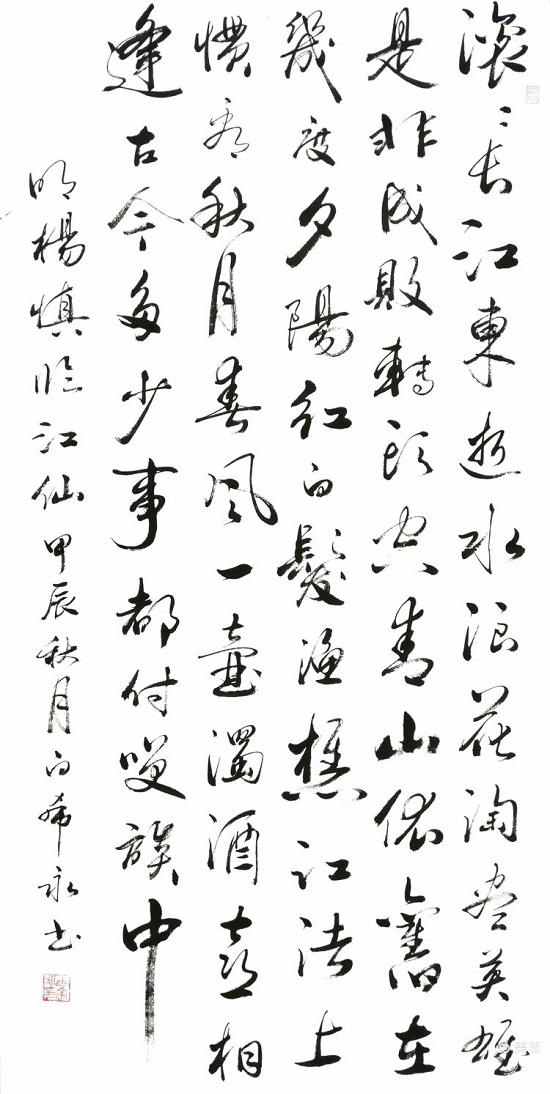 滚〻长江東逝水浪花淘尽英雄
是非成敗轉头空青山依舊在
幾度夕陽红白髮渔樵江渚上
惯看秋月春风一壺濁酒喜相
逢古今多少事都付笑談中
明楊慎临江仙甲辰秋月白希永书